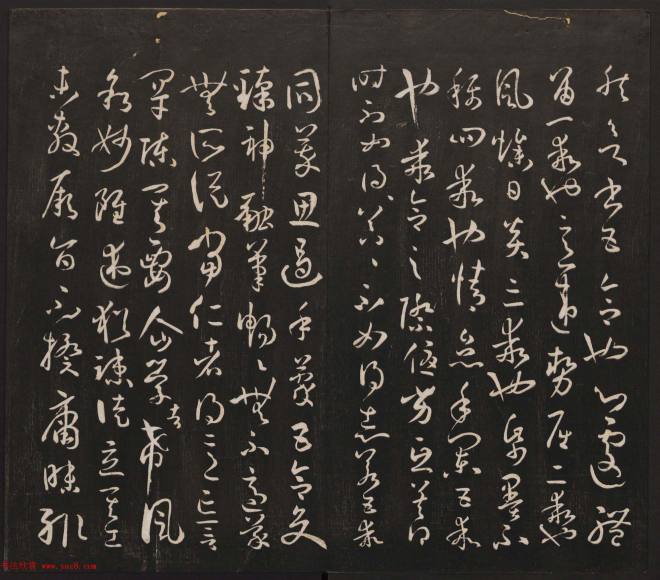 然欲書五合也心遽體
留一乖也意違勢屈二乖也
風燥日炎三乖也紙墨不
稱四乖也情怠手闌五乖
也乖合之際優劣互差得
時不如得器得器不如得志若五乖
同萃思遏手蒙五合交
臻神融筆暢暢無不適蒙
無所從當仁者得意忘言
罕陳其要企學者希風
敘妙雖述猶疎徒立其工
未敷厥旨不揆庸昧輒
书法欣赏 www.yac8.com